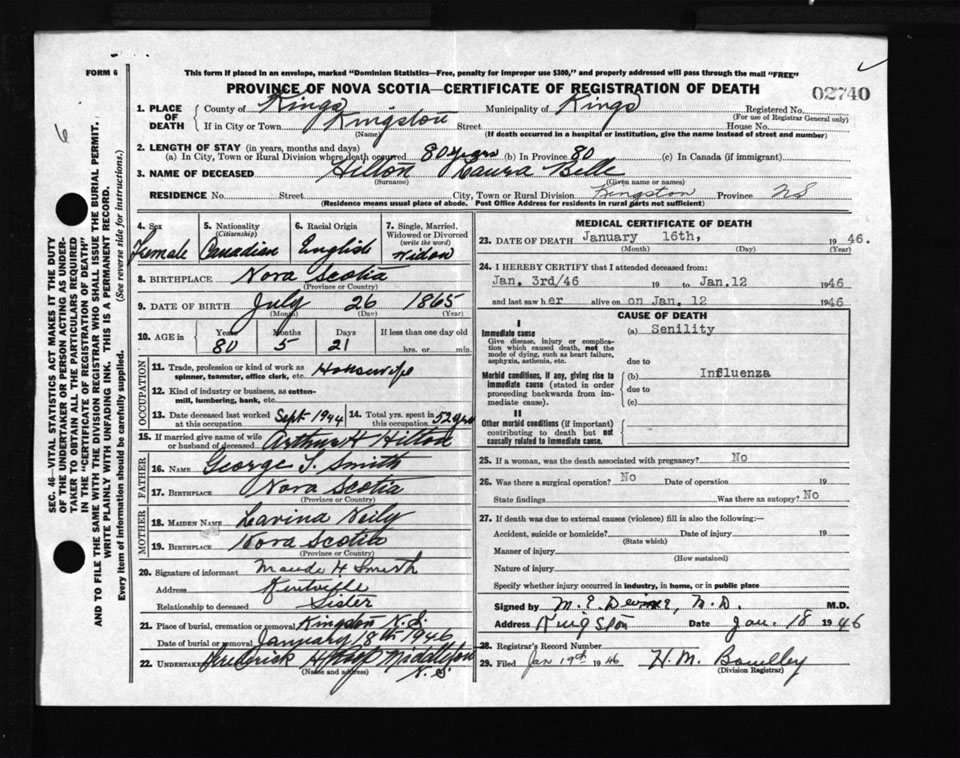 FORM 6
This form if placed in an envelope, marked "Dominion Statistics—Free, penalty for improper use $300," and properly addressed will pass through the mail "FREE"
PROVINCE OF NOVA SCOTIA—CERTIFICATE OF REGISTRATION OF DEATH
02740
6
1. PLACE OF DEATH
County of Kings Municipality of Kings Registered No.
(For use of Registrar General only)
If in City or Town Kingston Street House No.
(Name) (If death occurred in a hospital or institution, give the name instead of street and number)
2. LENGTH OF STAY (in years, months and days)
(a) In City, Town or Rural Division where death occurred 80 years (b) In Province 80 (c) In Canada (if immigrant)
3. NAME OF DECEASED Hilton Laura Belle
(Surname) (Given name or names)
RESIDENCE No. Street City, Town or Rural Division Kingston Province NS
(Residence means usual place of abode. Post Office Address for residents in rural parts not sufficient)
4. Sex Female
5. Nationality (Citizenship) Canadian
6. Racial Origin English
7. Single, Married, Widowed or Divorced (write the word) Widow
8. BIRTHPLACE Nova Scotia
(Province or Country)
9. DATE OF BIRTH July 26 1865
(Month) (Day) (Year)
10. AGE in Years Months Days If less than one day old
80 5 21 hrs. or min.
OCCUPATION
11. Trade, profession or kind of work as spinner, teamster, office clerk, etc. Housewife
12. Kind of industry or business, as cotton-mill, lumbering, bank, etc.
13. Date deceased last worked at this occupation Sept 1944 14. Total yrs. spent in this occupation 52 yrs
15. If married give name of wife or husband of deceased Arthur H Hilton
FATHER
16. NAME George T. Smith
17. BIRTHPLACE Nova Scotia
(Province or Country)
MOTHER
18. MAIDEN NAME Lavina Neily
19. BIRTHPLACE Nova Scotia
(Province or Country)
20. Signature of informant Maude H Smith
Address Kentville
Relationship to deceased Sister
21. Place of burial, cremation or removal Kingston N.S.
Date of burial or removal January 18th 1946
22. UNDERTAKER Frederick Middleton N.S.
(Name and address)
MEDICAL CERTIFICATE OF DEATH
23. DATE OF DEATH January 16th, 1946.
(Month) (Day) (Year)
24. I HEREBY CERTIFY that I attended deceased from:
Jan. 3rd/46 19 to Jan.12 1946
and last saw her alive on on Jan. 12 1946
CAUSE OF DEATH
I
Immediate cause
Give disease, injury or complication which caused death, not the mode of dying, such as heart failure, asphyxia, asthenia, etc.
(a) Senility
due to
Morbid conditions, if any, giving rise to immediate cause (stated in order proceeding backwards from immediate cause).
(b) Influenza
due to
(c)
II
Other morbid conditions (if important) contributing to death but not causally related to immediate cause.
25. If a woman, was the death associated with pregnancy? No
26. Was there a surgical operation? No Date of operation 19
State findings Was there an autopsy? No
27. If death was due to external causes (violence) fill in also the following:—
Accident, suicide or homicide? Date of injury 19
(State which)
Manner of injury
(How sustained)
Nature of injury
Specify whether injury occurred in industry, in home, or in public place
Signed by M.D. M.D.
Address Kingston Date Jan. 18 1946
28. Registrar's Record Number
29. Filed Jan 19th 1946 H.M.
(Division Registrar)
SEC. 46—VITAL STATISTICS ACT MAKES IT THE DUTY
OF THE UNDERTAKER OR PERSON ACTING AS UNDER-
TAKER TO OBTAIN ALL THE PARTICULARS REQUIRED
IN THE "CERTIFICATE OF REGISTRATION OF DEATH"
AND TO FILE THE SAME WITH THE DIVISION REGISTRAR WHO SHALL ISSUE THE BURIAL PERMIT.
WRITE PLAINLY WITH UNFADING INK. THIS IS A PERMANENT RECORD.
Every item of information should be carefully supplied. (See reverse side for instructions.)